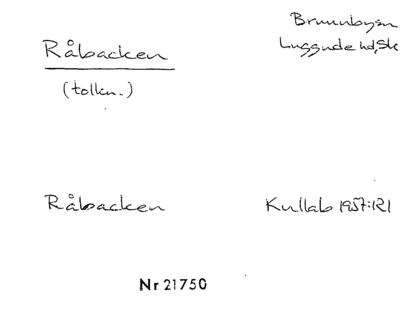 Brunnbysn
Luggude hd, Sk
Råbacken
(tolkn.)
Råbacken
Kullab 1957:121
Nr 21750